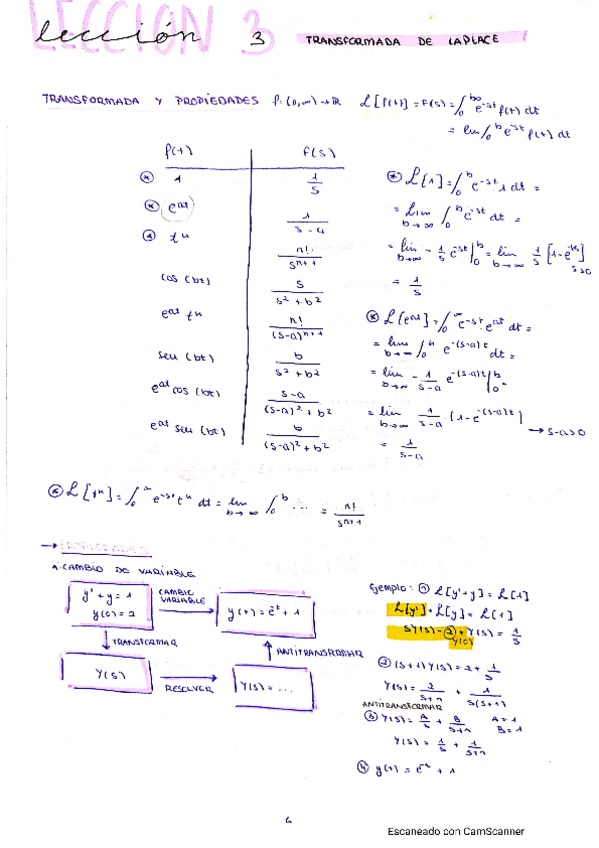 LECCIÓN 3
lección 3 TRANSFORMADA DE LAPLACE
TRANSFORMADA Y PROPIEDADES f: (0,∞) → ℝ L[f(t)] = F(s) = ∫₀^∞ e^-st f(t) dt
= lim ∫₀^b e^-st f(t) dt
f(t) F(s)
1 1/s
e^at 1/(s-a)
t^n n!/s^(n+1)
cos (bt) s/(s²+b²)
e^at t^n n!/(s-a)^(n+1)
sen (bt) b/(s²+b²)
e^at cos (bt) (s-a)/((s-a)²+b²)
e^at sen (bt) b/((s-a)²+b²)
L[1] = ∫₀^b e^-st 1 dt =
= lim b→∞ ∫₀^b e^-st dt =
= lim b→∞ - 1/s e^-st |₀^b = lim b→∞ 1/s [1-e^-bs] s>0
= 1/s
L[e^at] = ∫₀^∞ e^-st e^at dt =
= lim b→∞ ∫₀^b e^-(s-a)t dt =
= lim b→∞ - 1/(s-a) e^-(s-a)t |₀^b
= lim b→∞ 1/(s-a) [1-e^-(s-a)t] → s-a>0
= 1/(s-a)
L[t^n] = ∫₀^∞ e^-st t^n dt = lim b→∞ ∫₀^b ... = n!/s^(n+1)
CAMBIO DE VARIABLE
y' + y = 1
y(0) = 2
CAMBIO VARIABLE
y(t) = e^-t + 1
TRANSFORMAR
ANTITRANSFORMAR
Y(s)
RESOLVER
Y(s) = ...
Ejemplo: 1 L[y'+y] = L[1]
L[y'] + L[y] = L[1]
sY(s) - 2 + Y(s) = 1/s
y(0)
2 (s+1) Y(s) = 2 + 1/s
Y(s) = 2/(s+1) + 1/(s(s+1))
ANTITRANSFORMAR
3 Y(s) = A/s + B/(s+1) A = 1
B = 1
Y(s) = 1/s + 1/(s+1)
4 y(t) = e^-t + 1
Escaneado con CamScanner